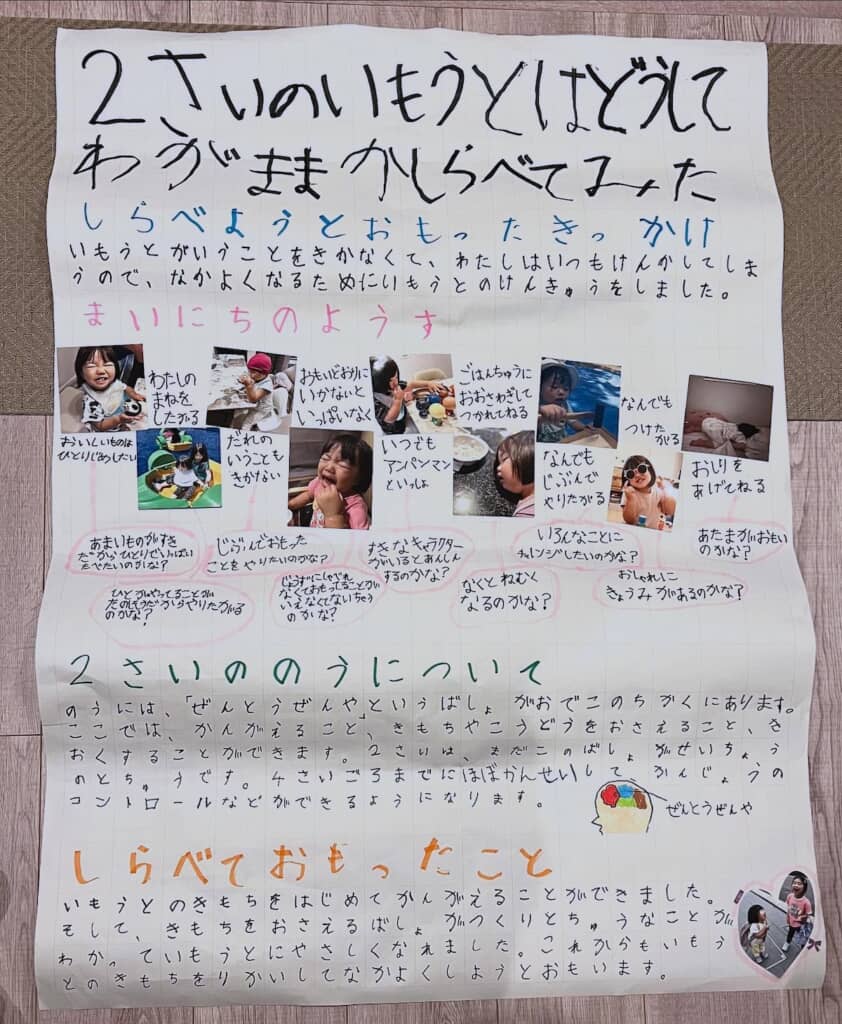 2さいのいもうとはどうして
わがままかしらべてみた
しらべようとおもったきっかけ
いもうとがいうことをきかなくて、わたしはいつもけんかしてしま
うので、なかよくなるためにいもうとのけんきゅうをしました。
まいにちのようす
わたしの
まねを
したがる
おもいどおりに
いかないと
いっぱいなく
ごはんちゅうに
おおさわぎして
つかれてねる
なんでも
つけた
がる
おいしいものは
ひとりじめしたい
だれの
いうことも
きかない
いつでも
アンパンマン
といっしょ
なんでも
じぶんで
やりたがる
おしりを
あげてねる
あまいものがすき
だから、ひとりでいっぱい
たべたいのかな?
じぶんでおもった
ことをやりたいのかな?
すきなキャラクター
がいるとあんしん
するのかな?
いろんなことに
チャレンジしたいのかな?
あたまがおもい
のかな?
ひとがやってることが
たのしそうだからやりたがる
のかな?
じょうずにしゃべれ
なくておもってることが
いえなくてないちゃう
のかな?
なくとねむく
なるのかな?
おしゃれに
きょうみがあるのかな?
2さいののうについて
のうには、「ぜんとうぜんや」というばしょがおでこのちかくにあります。
ここでは、かんがえること、きもちやこうどうをおさえること、き
おくすることができます。2さいは、まだこのばしょがせいちょう
のとちゅうです。4さいごろまでにほぼかんせいして、かんじょうの
コントロールなどができるようになります。
ぜんとうぜんや
しらべておもったこと
いもうとのきもちをはじめてかんがえることができました。
そして、きもちをおさえるばしょがつくりとちゅうなことが
わかっていもうとにやさしくなれました。これからもいもう
とのきもちをりかいしてなかよくしようとおもいます。